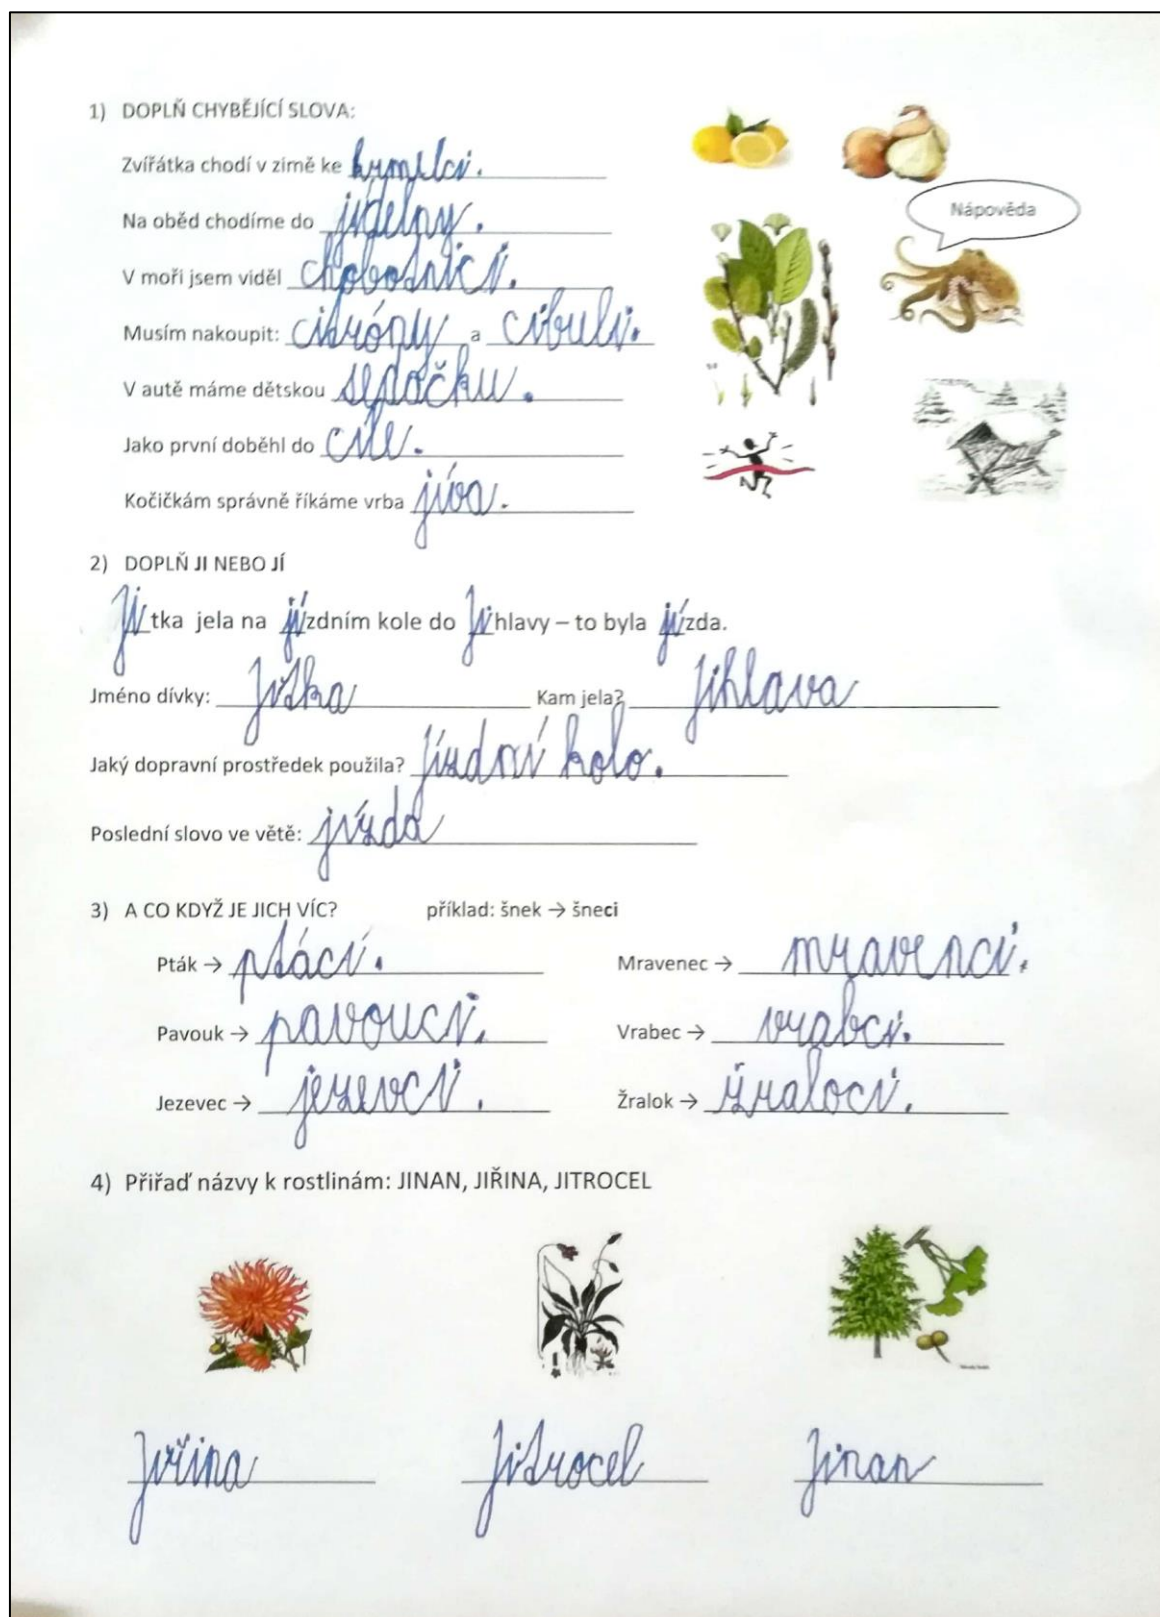 1) DOPLŇ CHYBĚJÍCÍ SLOVA:
Zvířátka chodí v zimě ke krmelci.
Nápověda
Na oběd chodíme do jídelny.
V moři jsem viděl chobotnici.
Musím nakoupit: citróny a cibuli.
V autě máme dětskou sedačku.
Jako první doběhl do cíle.
Kočičkám správně říkáme vrba jíva.
2) DOPLŇ JI NEBO JÍ
Jitka jela na jízdním kole do Jihlavy – to byla jízda.
Jméno dívky: Jitka Kam jela? Jihlava
Jaký dopravní prostředek použila? jízdní kolo.
Poslední slovo ve větě: jízda
3) A CO KDYŽ JE JICH VÍC? příklad: šnek → šneci
Pták → ptáci. Mravenec → mravenci.
Pavouk → pavouci. Vrabec → vrabci.
Jezevec → jezevci. Žralok → žraloci.
4) Přiřaď názvy k rostlinám: JINAN, JIŘINA, JITROCEL
Jiřina Jitrocel Jinan